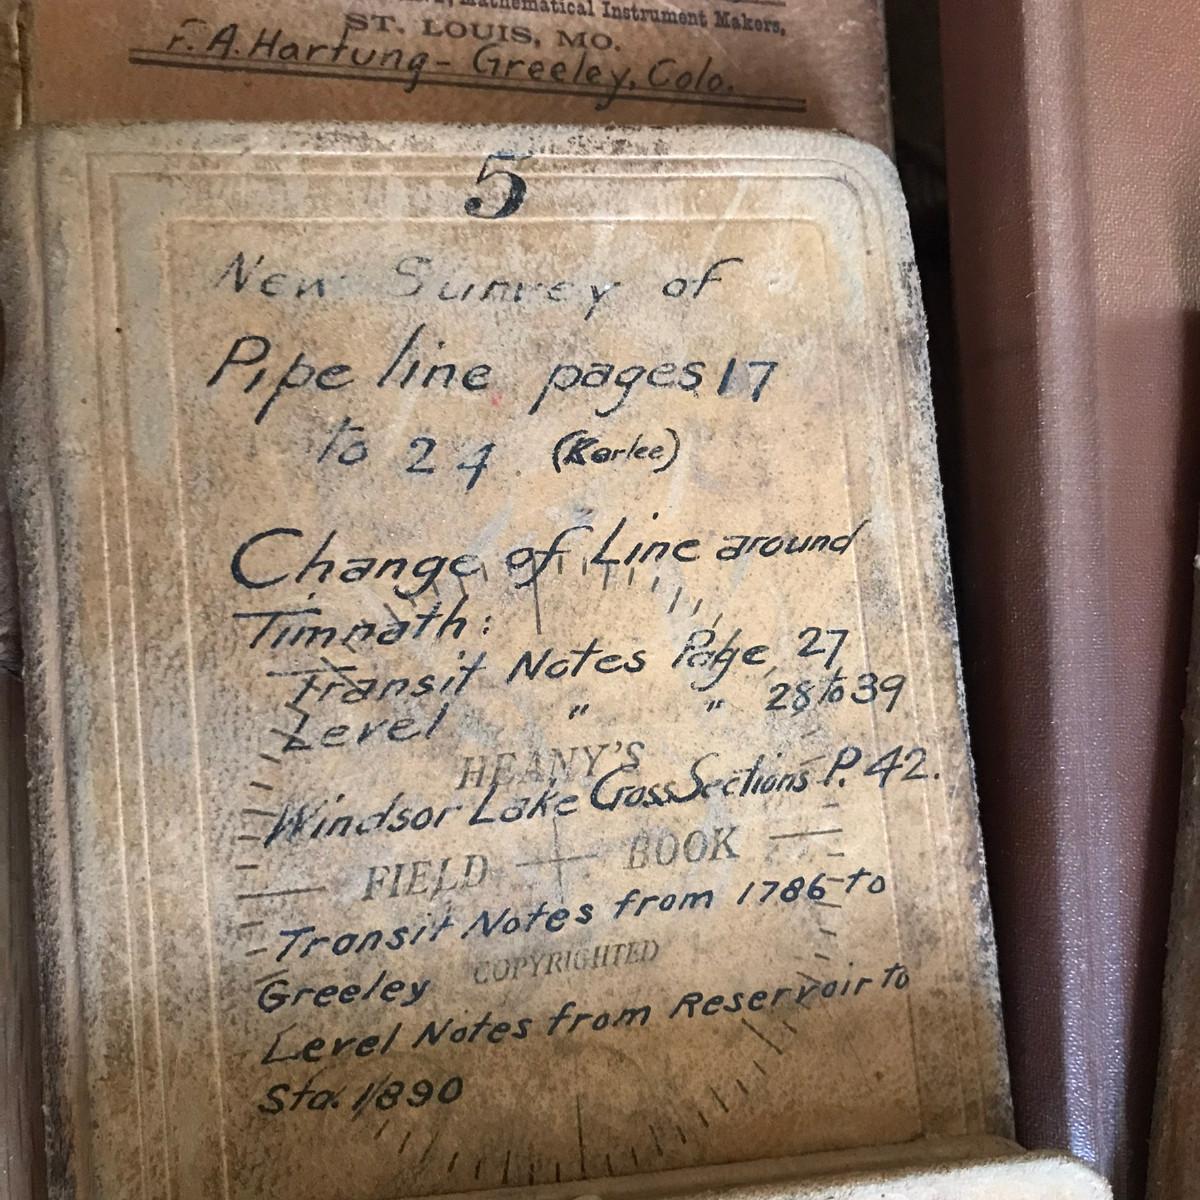 Mathematical Instrument Makers,
ST. LOUIS, MO.
F. A. Hartung - Greeley, Colo.
5
New Survey of
Pipe line pages 17
to 24 (Karlee)
Change of Line around
Timnath:
Transit Notes Page 27
Level " " 28 to 39
HEANY'S
Windsor Lake Cross Sections P. 42.
FIELD BOOK
Transit Notes from 1786 to
COPYRIGHTED
Greeley
Level Notes from Reservoir to
Sta. 1890